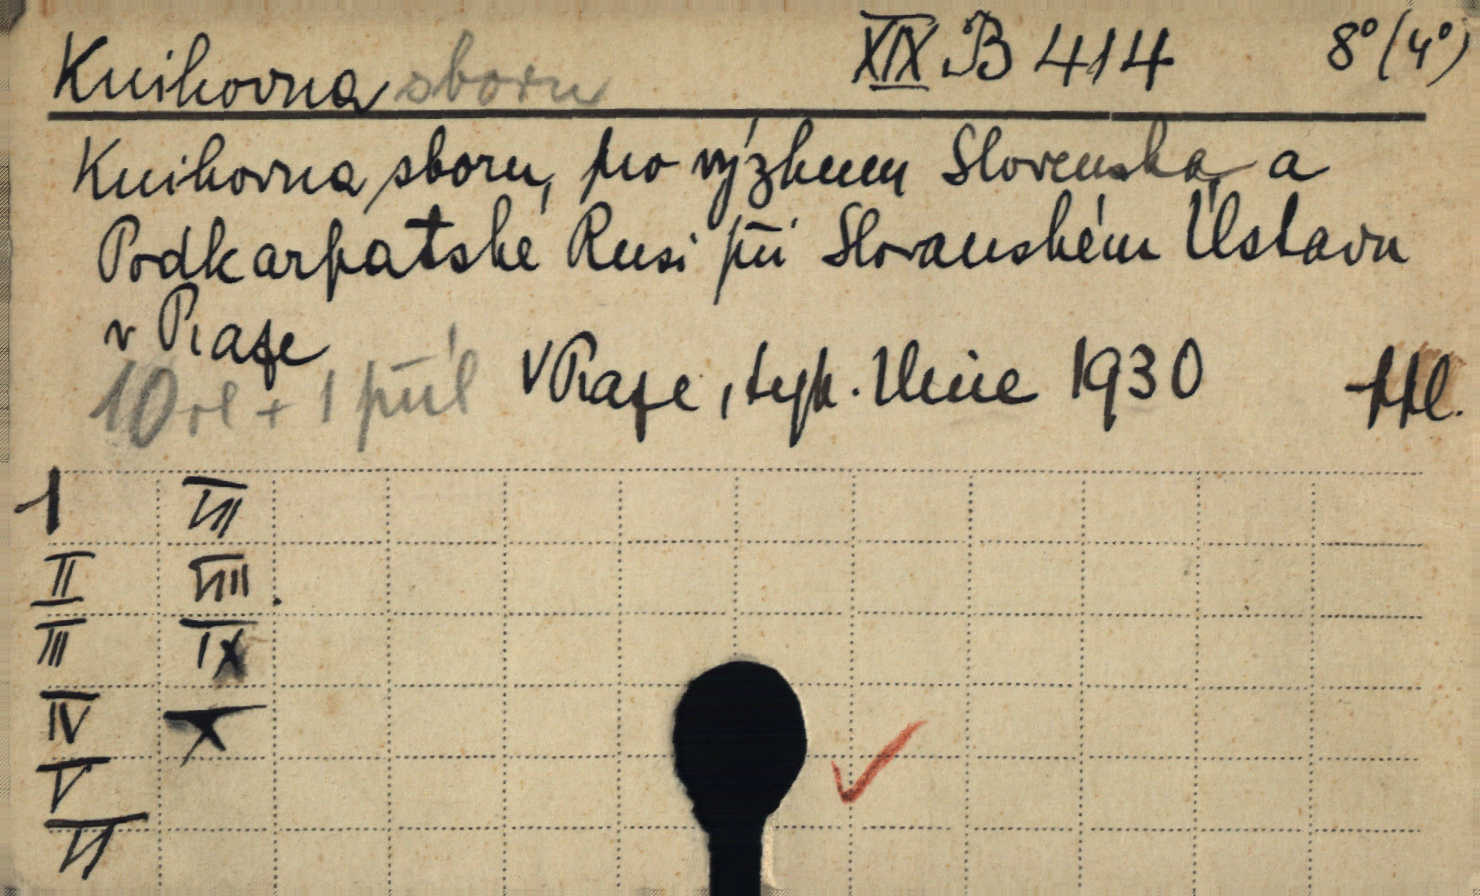 Knihovna sboru XIX B 414 8° (4°)
Knihovna sboru pro výzkum Slovenska a
Podkarpatské Rusi při Slovanském Ústavu
v Praze
10 sv + 1 příl V Praze, typ. Unie 1930
I VII
II VIII
III IX
IV X
V
VI